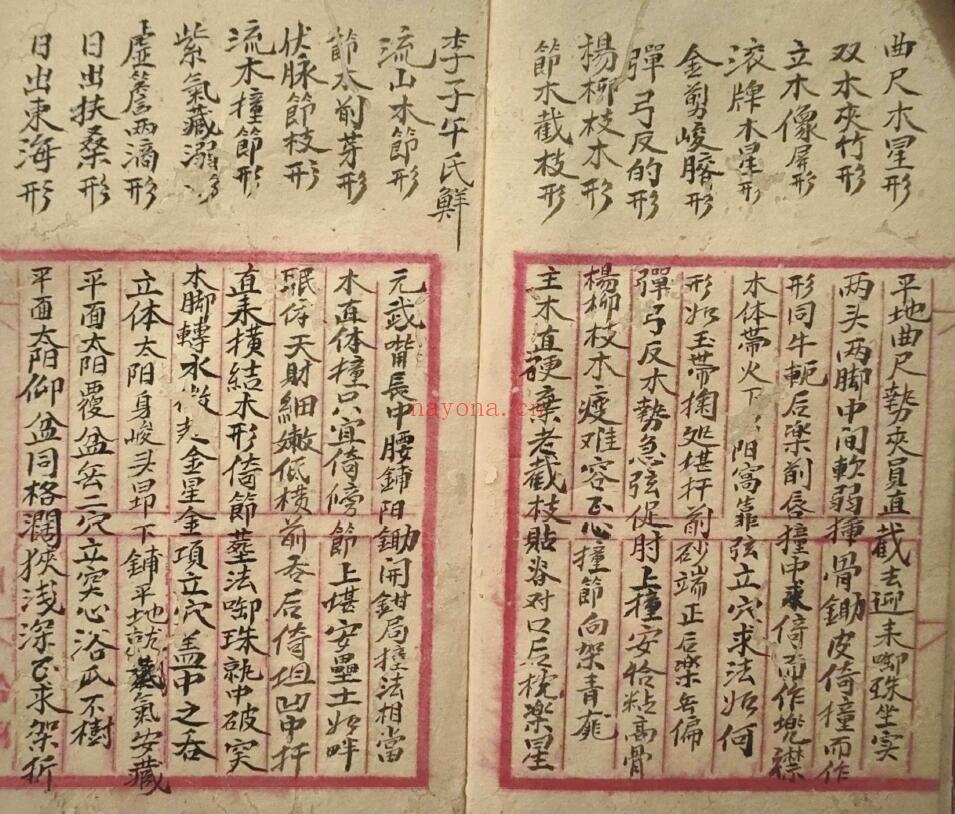 曲尺木星形
双木夾竹形
立木像屏形
滚牌木星形
金剪峻脐形
彈弓反的形
楊柳枝木形
節木截枝形
平地曲尺勢夾員直截去迎耒啣珠坐实
两头两脚中间軟弱揮骨鋤皮倚撞而作
形同牛軛后楽前唇撞中求倚而作兠襟
木体帶火下阳窩靠弦立穴求法如何
形如玉帶掬处堪扦前砂端正后楽无偏
彈弓反木勢急弦促肘上撞安恰粘高骨
楊柳枝木瘦难容正心撞節向架青龍
主木直硬棄老截枝貼脊对口后枕楽星
李子午氏鮮
流山木節形
節太前芽形
伏脉節枝形
流木撞節形
紫氣藏溺
虚簷两滴形
日出扶桑形
日出東海形
元武嘴長中腰鋪阳鋤开鉗局撞法相當
木直体撞口宜倚傍節上堪安壘土如畔
眠倚天財細嫩低横前吞后倚坦凹中扞
直耒横結木形倚節塟法啣珠就中破突
木脚轉水金星金項立穴盖中之吞
立体太阳身峻头昂下鋪平地就氣安藏
平面太阳覆盆无二穴立突心浴氏不樹
平面太阳仰盆同格濶狹浅深正求架折
nayona.cn